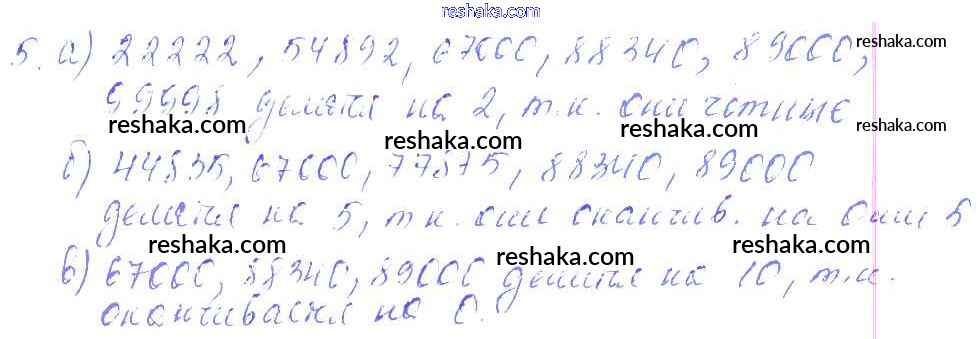 reshaka.com
5. а) 22222, 54892, 67000, 88340, 89000,
reshaka.com
99998 делятся на 2, т.к. они чётные
reshaka.com reshaka.com reshaka.com reshaka.com
б) 44835, 67000, 77875, 88340, 89000
делятся на 5, т.к. они оканчив. на 0 или 5
reshaka.com reshaka.com reshaka.com
в) 67000, 88340, 89000 делятся на 10, т.к.
оканчиваются на 0.